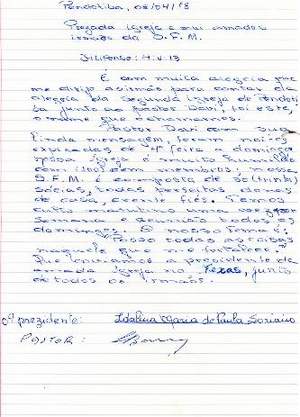 Pendotiba, 08/04/78
Prezada igreja e mui amados
irmãos da S.F.M.
Filipense: 4.v.13
É com muita alegria que
me dirijo as irmãs para contar da
alegria da Segunda igreja de Pendoti
ba junto ao Pastor Davi, foi este,
o nome que chamamos.
Pastor Davi com sua
linda mensagem, foram
de 4ª feira a domingo
nossa igreja é muito humilde
com (100) cem membros; nossa
S.F.M. é composta de 30 (trinta)
sócias, todas perfeitas donas
de casa, crente fiés. Temos
culto uma vez por
semana e reunião todos os
domingos. O nosso lema é:
"Posso todas as coisas
naquele que me fortalece."
Que a presidente da
amada igreja no Texas, junto
de todos os irmãos.
A prezidente: Idalina Maria de Paula Soriano
Pastor: